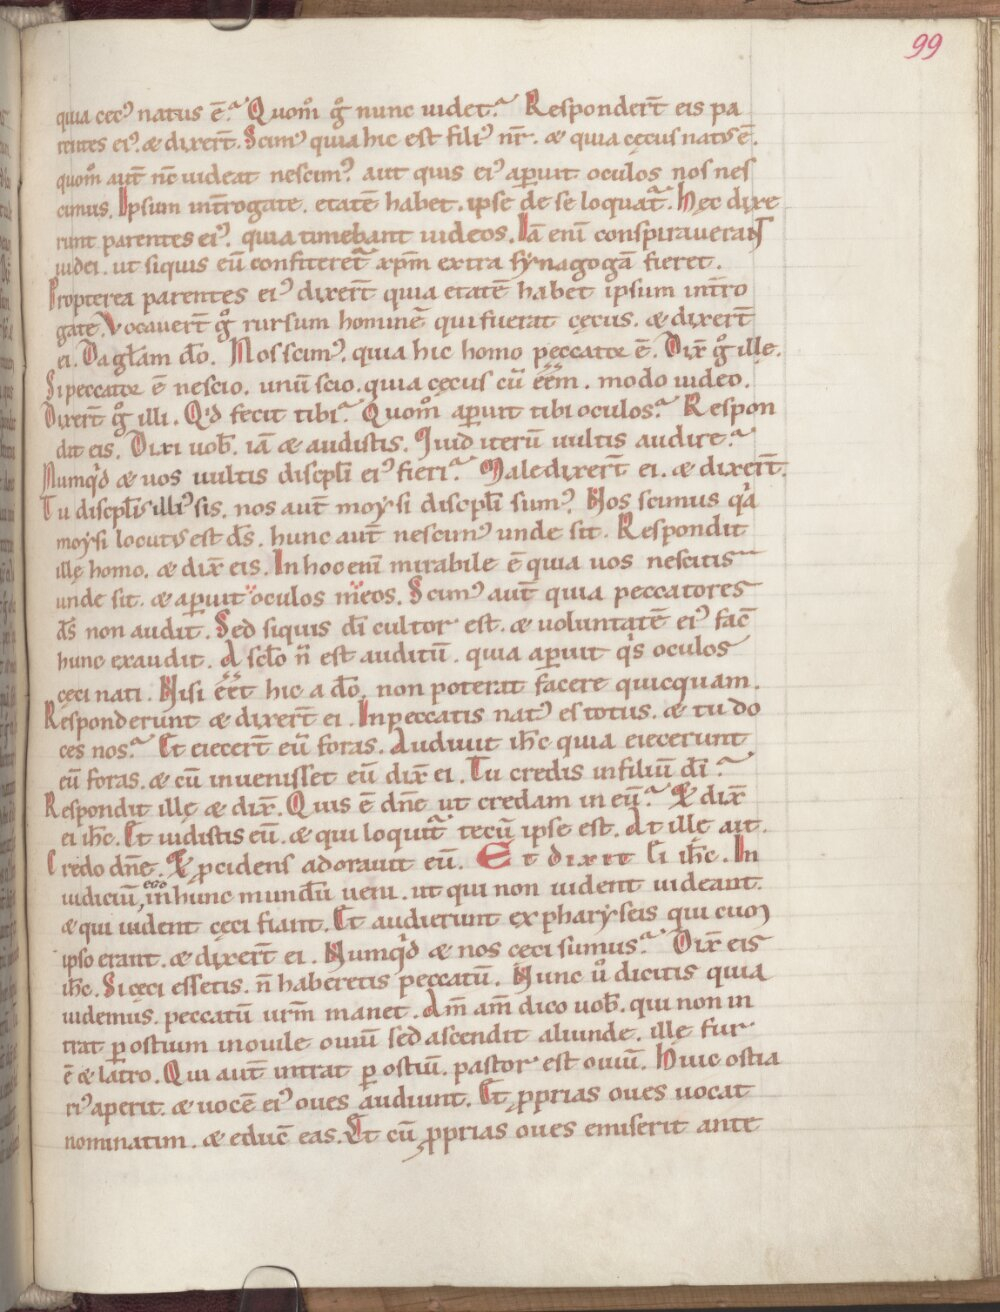 99
quia cec᷒ natus ē. Quom̄ g̊ nunc uidet. Respondert̄ eis pa
rentes ei᷒. & dixert̄. Scim᷒ quia hic est fili᷒ nr̄. & quia cęcus natus ē.
quom̄ aut̄ nc̄ uideat nescim᷒. aut quis ei᷒ apͥuit oculos nos nes
cimus. Ipsum int̄rogate. etatē habet. ipse de se loquat̄. Hęc dixe
runt parentes ei᷒. quia timebant iudeos. Iā enī conspirauerant
iudei. ut siquis eū confiteret̄ xp̄m extra synagogā fieret.
Propterea parentes ei᷒ dixert̄ quia etatē habet ipsum int̄ro
gate. Vocauert̄ g̊ rursum hominē qui fuerat cęcus. & dixert̄
ei. Da gl̄am dō. Nos scim᷒. quia hic homo peccator ē. Dix̄ g̊ ille.
Si peccator ē nescio. unū scio. quia cęcus cū eēm. modo uideo.
Dixert̄ g̊ illi. Qͥd fecit tibi. Quom̄ apͥuit tibi oculos. Respon
dit eis. Dixi uob̄. iā & audistis. Quid iterū uultis audire.
Numqͥd & uos uultis discipl̄i ei᷒ fieri. Maledixert̄ ei. & dixert̄.
Tu discipl̄s illi᷒ sis. nos aut̄ moysi discipl̄i sum᷒. Nos scimus qͥa
moysi locutus est d̄s. hunc aut̄ nescim᷒ unde sit. Respondit
ille homo. & dix̄ eis. In hoc enī mirabile ē quia uos nescitis
unde sit. & apͥuit oculos meos. Scim᷒ aut̄ quia peccatores
d̄s non audit. Sed siquis dī cultor est. & voluntatē ei᷒ fac̄
hunc exaudit. A scl̄o n̄ est auditū. quia apͥuit qͥs oculos
cęci nati. Nisi eēt hic a dō. non poterat facere quicquam.
Responderunt & dixert̄ ei. In peccatis nat᷒ es totus. & tu do
ces nos. Et eiecert̄ eū foras. Audiuit ih̄c quia eiecerunt
eū foras. & cū inuenisset eū dix̄ ei. Tu credis in filiū dī.
Respondit ille & dix̄. Quis ē dn̄e ut credam in eū. Et dix̄
ei ih̄c. Et uidistis eū. & qui loquit̄ tecū ipse est. At ille ait.
Credo dn̄e. Et ꝓcidens adorauit eū. Et dixit ei ih̄c. In
iudiciū ego in hunc mundū ueni. ut qui non uident uideant.
& qui uident cęci fiant. Et audierunt ex pharyseis qui cum
ipso erant. & dixert̄ ei. Numqͥd & nos cęci sumus. Dix̄ eis
ih̄c. Si cęci essetis. n̄ haberetis peccatū. Nunc ū dicitis quia
uidemus. peccatū urm̄ manet. Am̄ am̄ dico uob̄. qui non in
trat ꝑ ostium in ouile ouiū sed ascendit aliunde. ille fur
ē & latro. Qui aut̄ intrat ꝑ ostiū. pastor est ouiū. Huic ostia
ri᷒ aperit. & uocē ei᷒ oues audiunt. Et ꝓprias oues uocat
nominatim. & educ̄ eas. Et cū ꝓprias oues emiserit ante